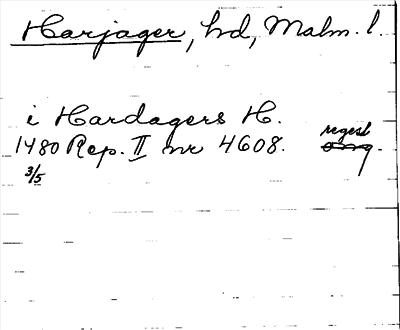 Harjager, hd, Malm. l.
i Hardagers H.
1480 Rep. II nr 4608. regest
3/5